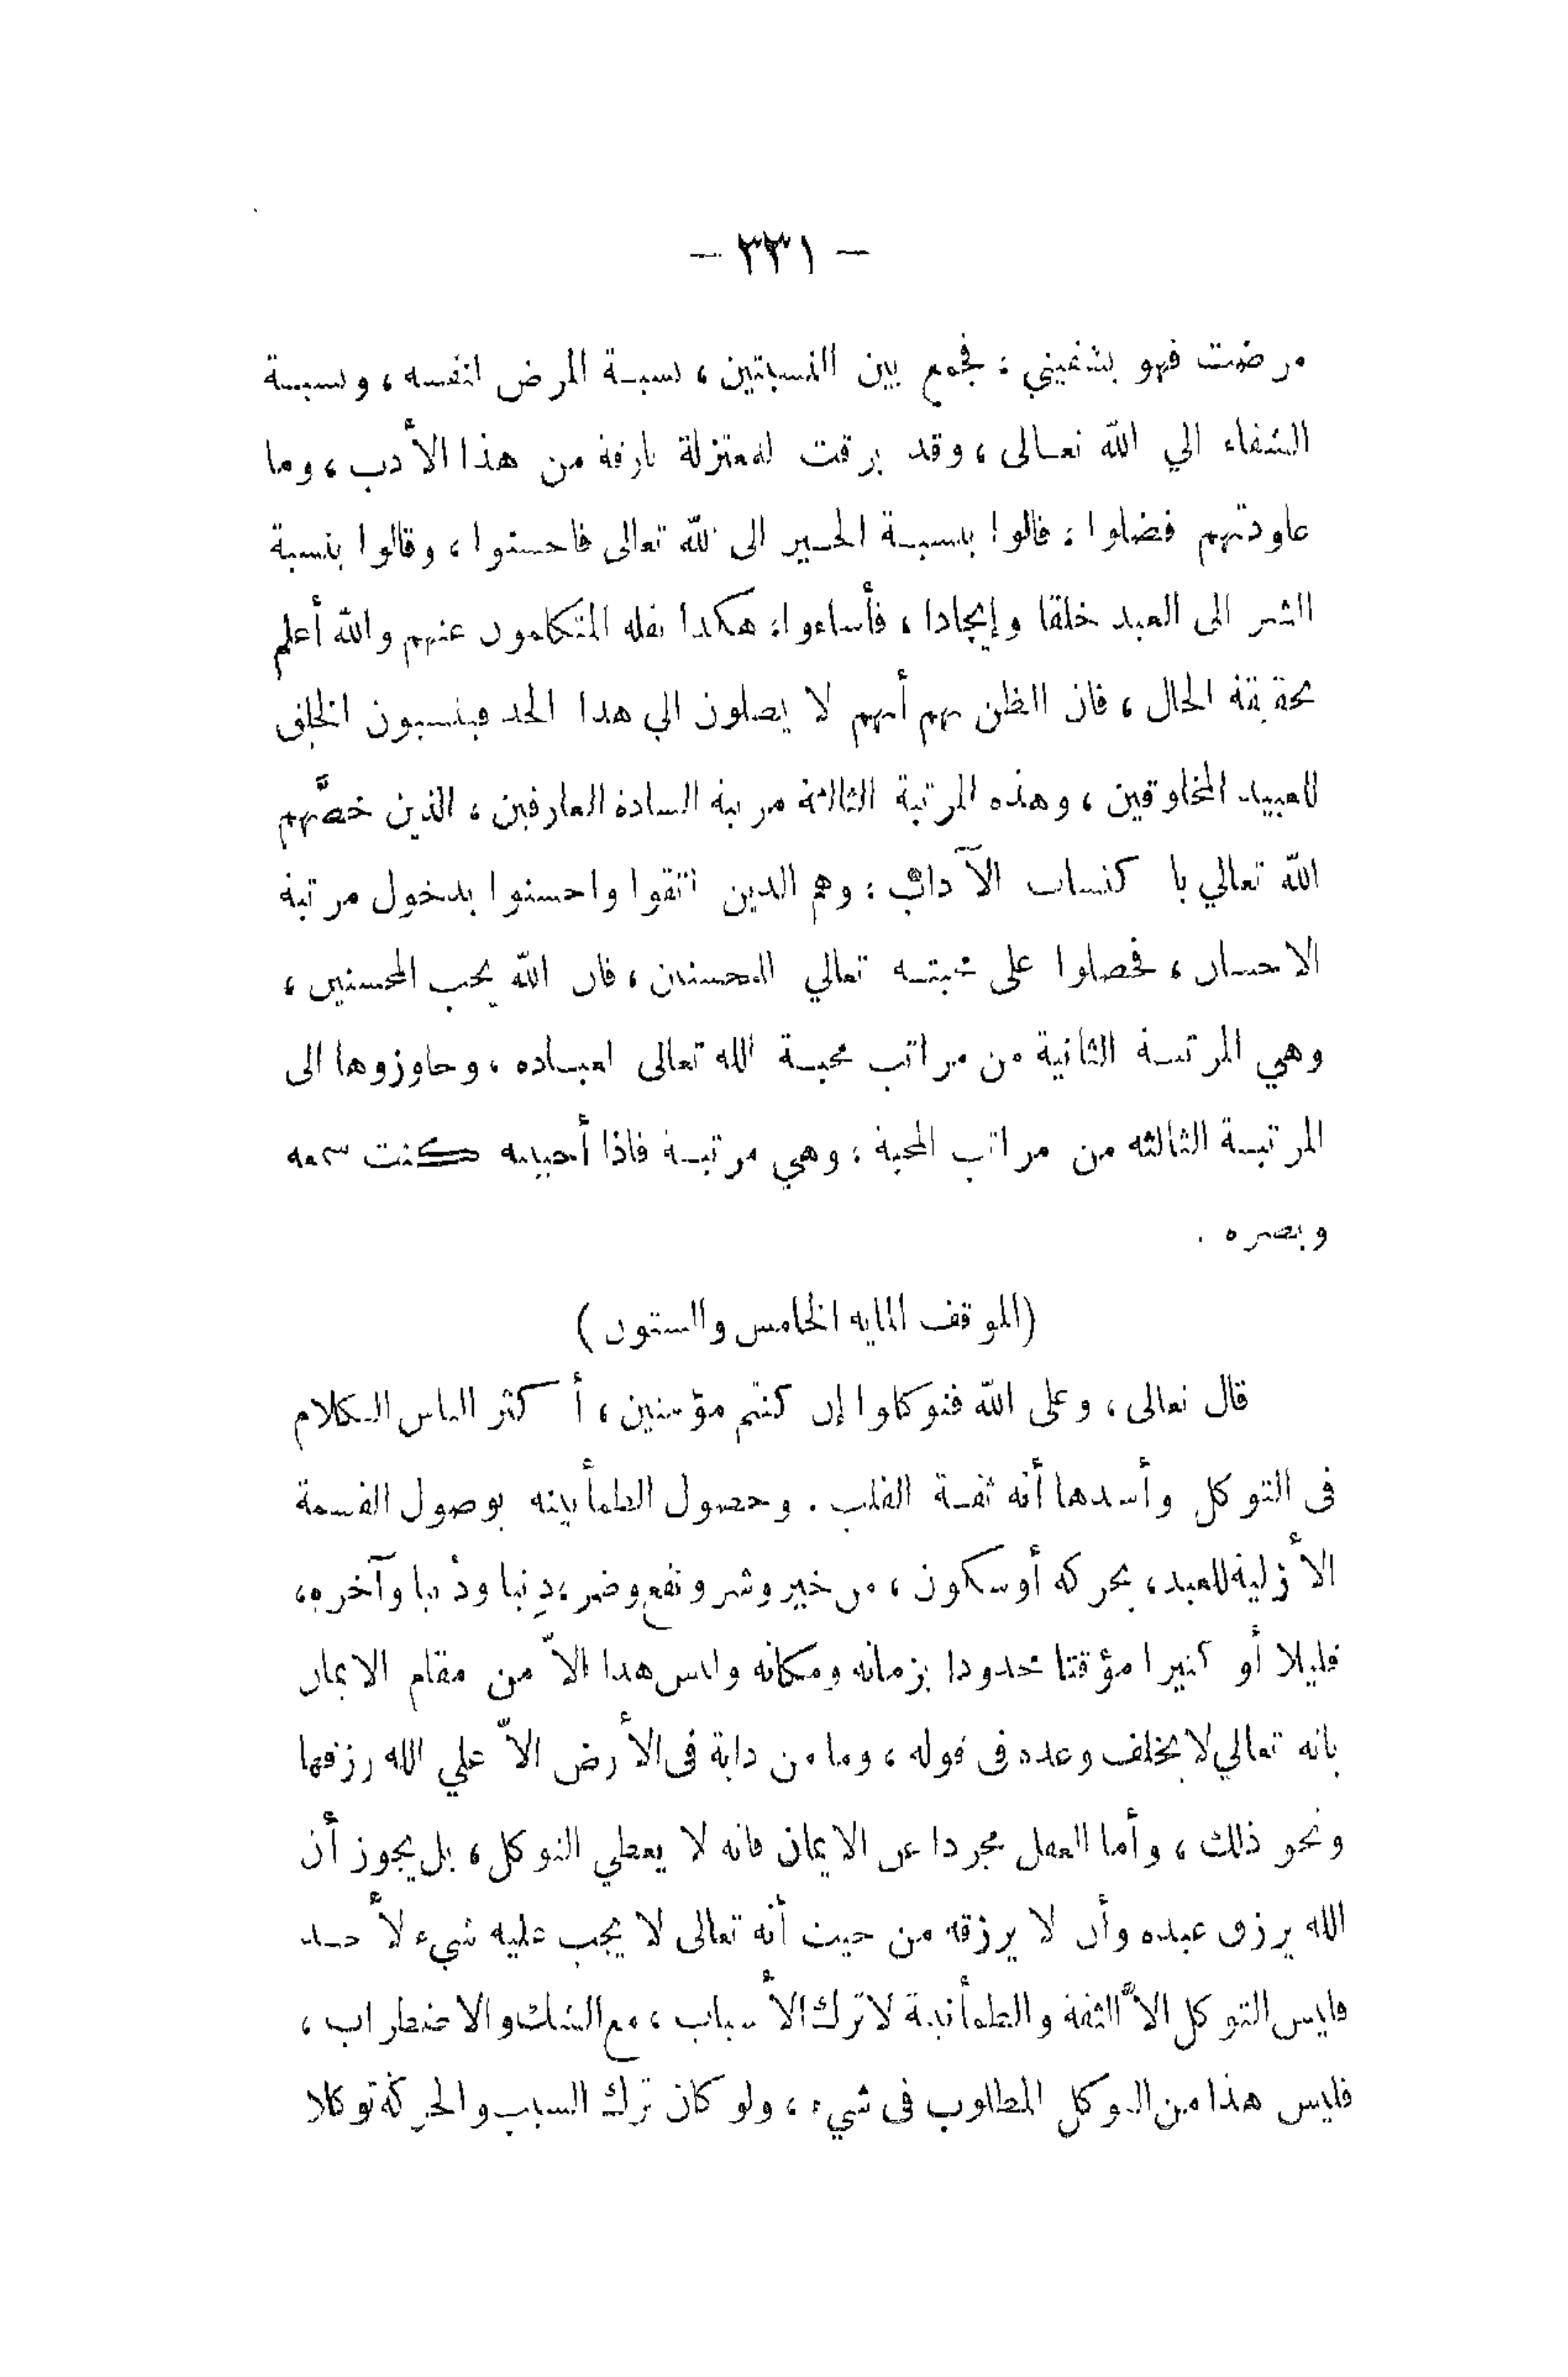 — ٣٣١ —
مرضت فهو يشفيني ؛ فجمع بين النسبتين ، نسبة المرض لنفسه ، ونسبة
الشفاء الي الله تعالى ، وقد برقت للمعتزلة بارقة من هذا الأدب ، وما
عاودتهم فضلوا ؛ قالوا بنسبة الخير الى الله تعالى فاحسنوا ، وقالوا بنسبة
الشر الى العبد خلقا وإيجادا ، فأساءوا ؛ هكذا نقله المتكلمون عنهم والله أعلم
بحقيقة الحال ، فان الظن بهم أنهم لا يصلون الي هذا الحد فينسبون الخلق
للعبيد المخلوقين ، وهذه المرتبة الثالثة مرتبة السادة العارفين ، الذين خصَّهم
الله تعالي با كتساب الآداب ؛ وهم الذين اتقوا واحسنوا بدخول مرتبة
الاحسان ، فحصلوا على محبته تعالي للمحسنين ، فان الله يحب المحسنين ،
وهي المرتبة الثانية من مراتب محبة الله تعالى لعباده ، وجاوزوها الى
المرتبة الثالثه من مراتب المحبة ؛ وهي مرتبة فاذا أحببته كنت سمعه
وبصره .
(الموقف المايه الخامس والستون )
قال تعالى ، وعلى الله فتوكلوا إن كنتم مؤمنين ، أ كثر الناس الكلام
فى التوكل وأسدها أنه ثقة القلب . وحصول الطمأنينه بوصول القسمة
الأزلية للعبد ، بحركه أو سكون ، من خير وشر ونفع وضر ، دِنيا ودُنيا وآخره ،
قليلا أو كثيرا مؤقتا محدودا بزمانه ومكانه وليس هذا الاّ من مقام الايمان
بانه تعالي لا يخلف وعده فى قوله ، وما من دابة فى الأرض الاّ علي الله رزقها
ونحو ذلك ، وأما العقل مجردا عن الايمان فانه لا يعطي التوكل ، بل يجوز أن
الله يرزق عبده وأن لا يرزقه من حيث أنه تعالى لا يجب عليه شيء لأحد
فليس التوكل الاّ الثقة والطمأنينة لا ترك الأسباب ، مع الشك والاضطراب ،
فليس هذا من التوكل المطلوب فى شيء ، ولو كان ترك السبب والحركة توكلا